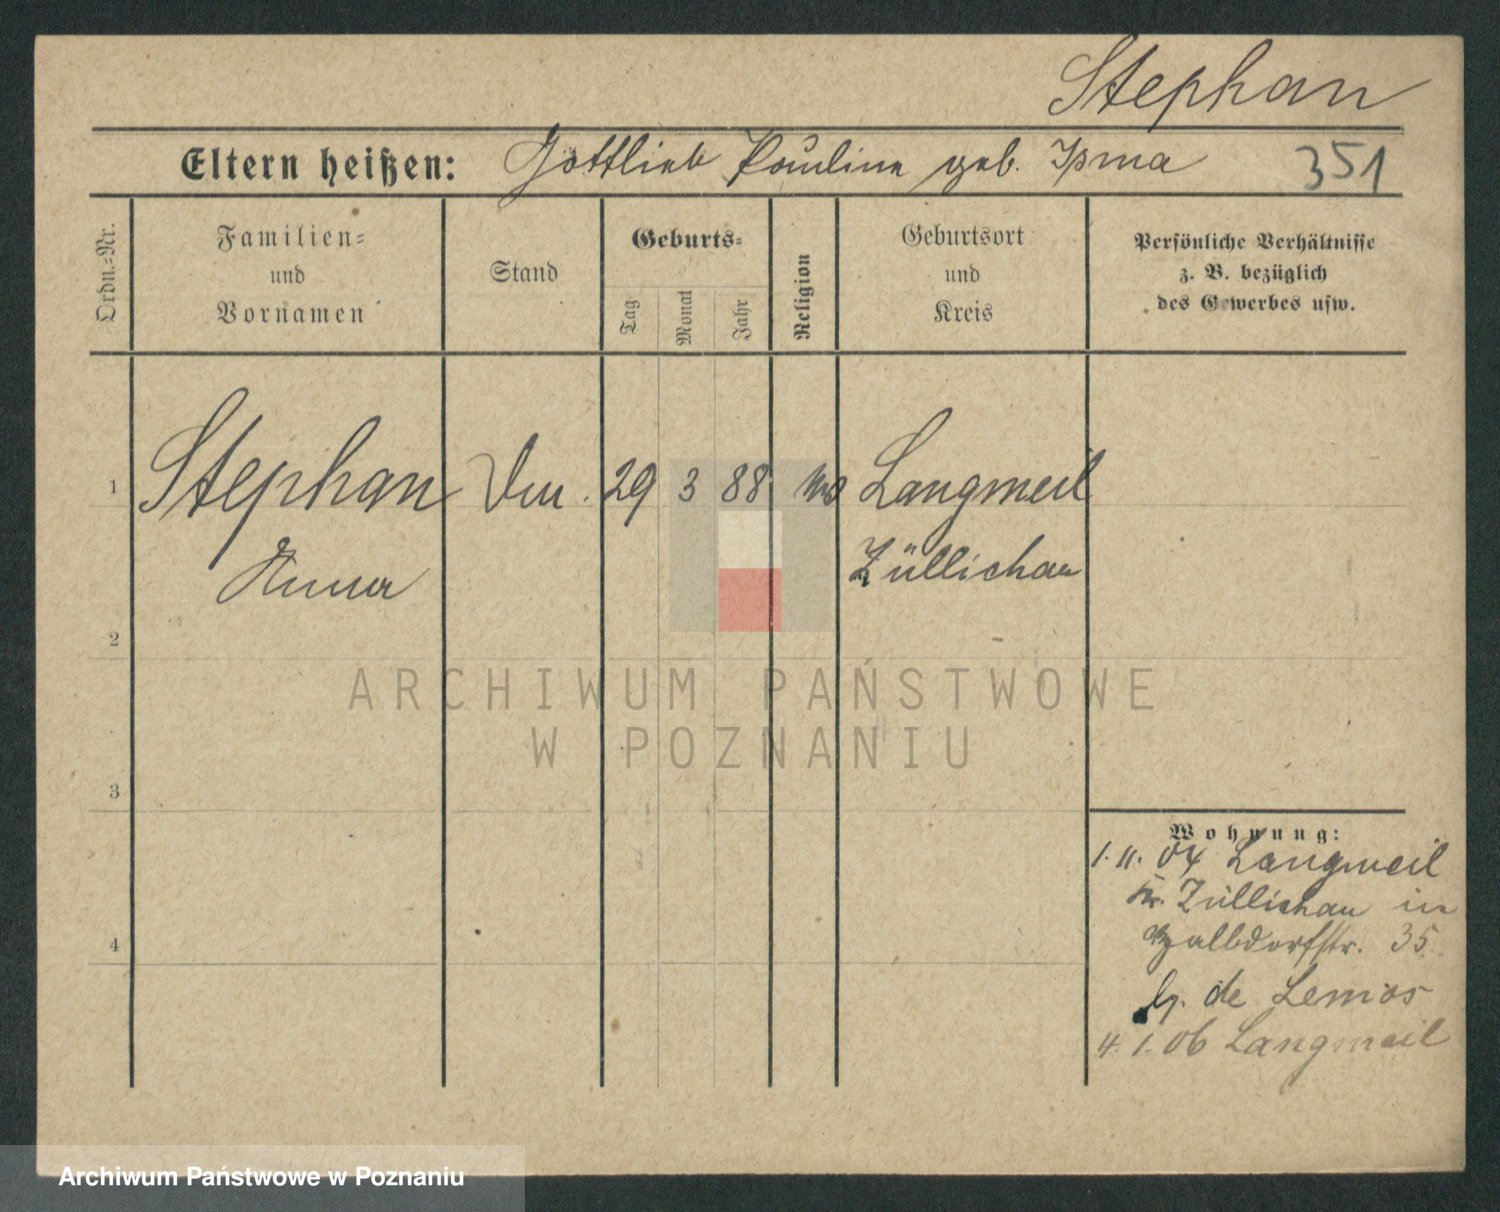 Stephan
Eltern heißen: Gottlieb Pauline geb. Ipma
351
Ordn.-Nr.
Familien-
und
Vornamen
Stand
Geburts-
Tag
Monat
Jahr
Religion
Geburtsort
und
Kreis
Persönliche Verhältnisse
z. B. bezüglich
des Gewerbes usw.
1 Stephan 29 3 88 Langmeil
Anna Züllichau
2
3
4
Wohnung:
1. 11. 04 Langmeil
Kr. Züllichau in
35
de Lemos
4. 1. 06 Langmeil
ARCHIWUM PAŃSTWOWE
W POZNANIU
Archiwum Państwowe w Poznaniu